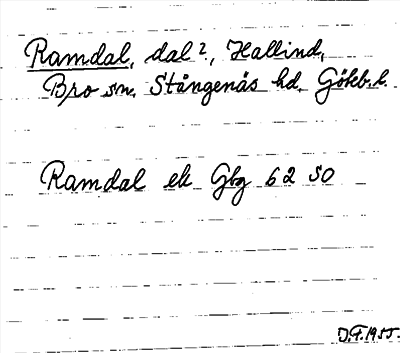 Ramdal, dal?, Hallind,
Bro sn. Stångenäs hd. Göteb. l.
Ramdal ek Gbg 6 2 SO
J.F. 1955.